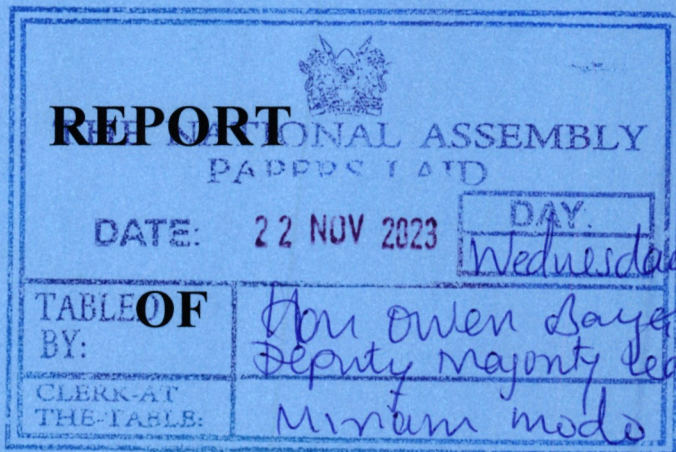 REPORT
THE NATIONAL ASSEMBLY
PAPERS LAID
DATE: 22 NOV 2023
DAY.
Wednesda
TABLED OF
BY:
Hon Owen Baya
Deputy Majority Lea
CLERK-AT
THE-TABLE:
Miriam Modo